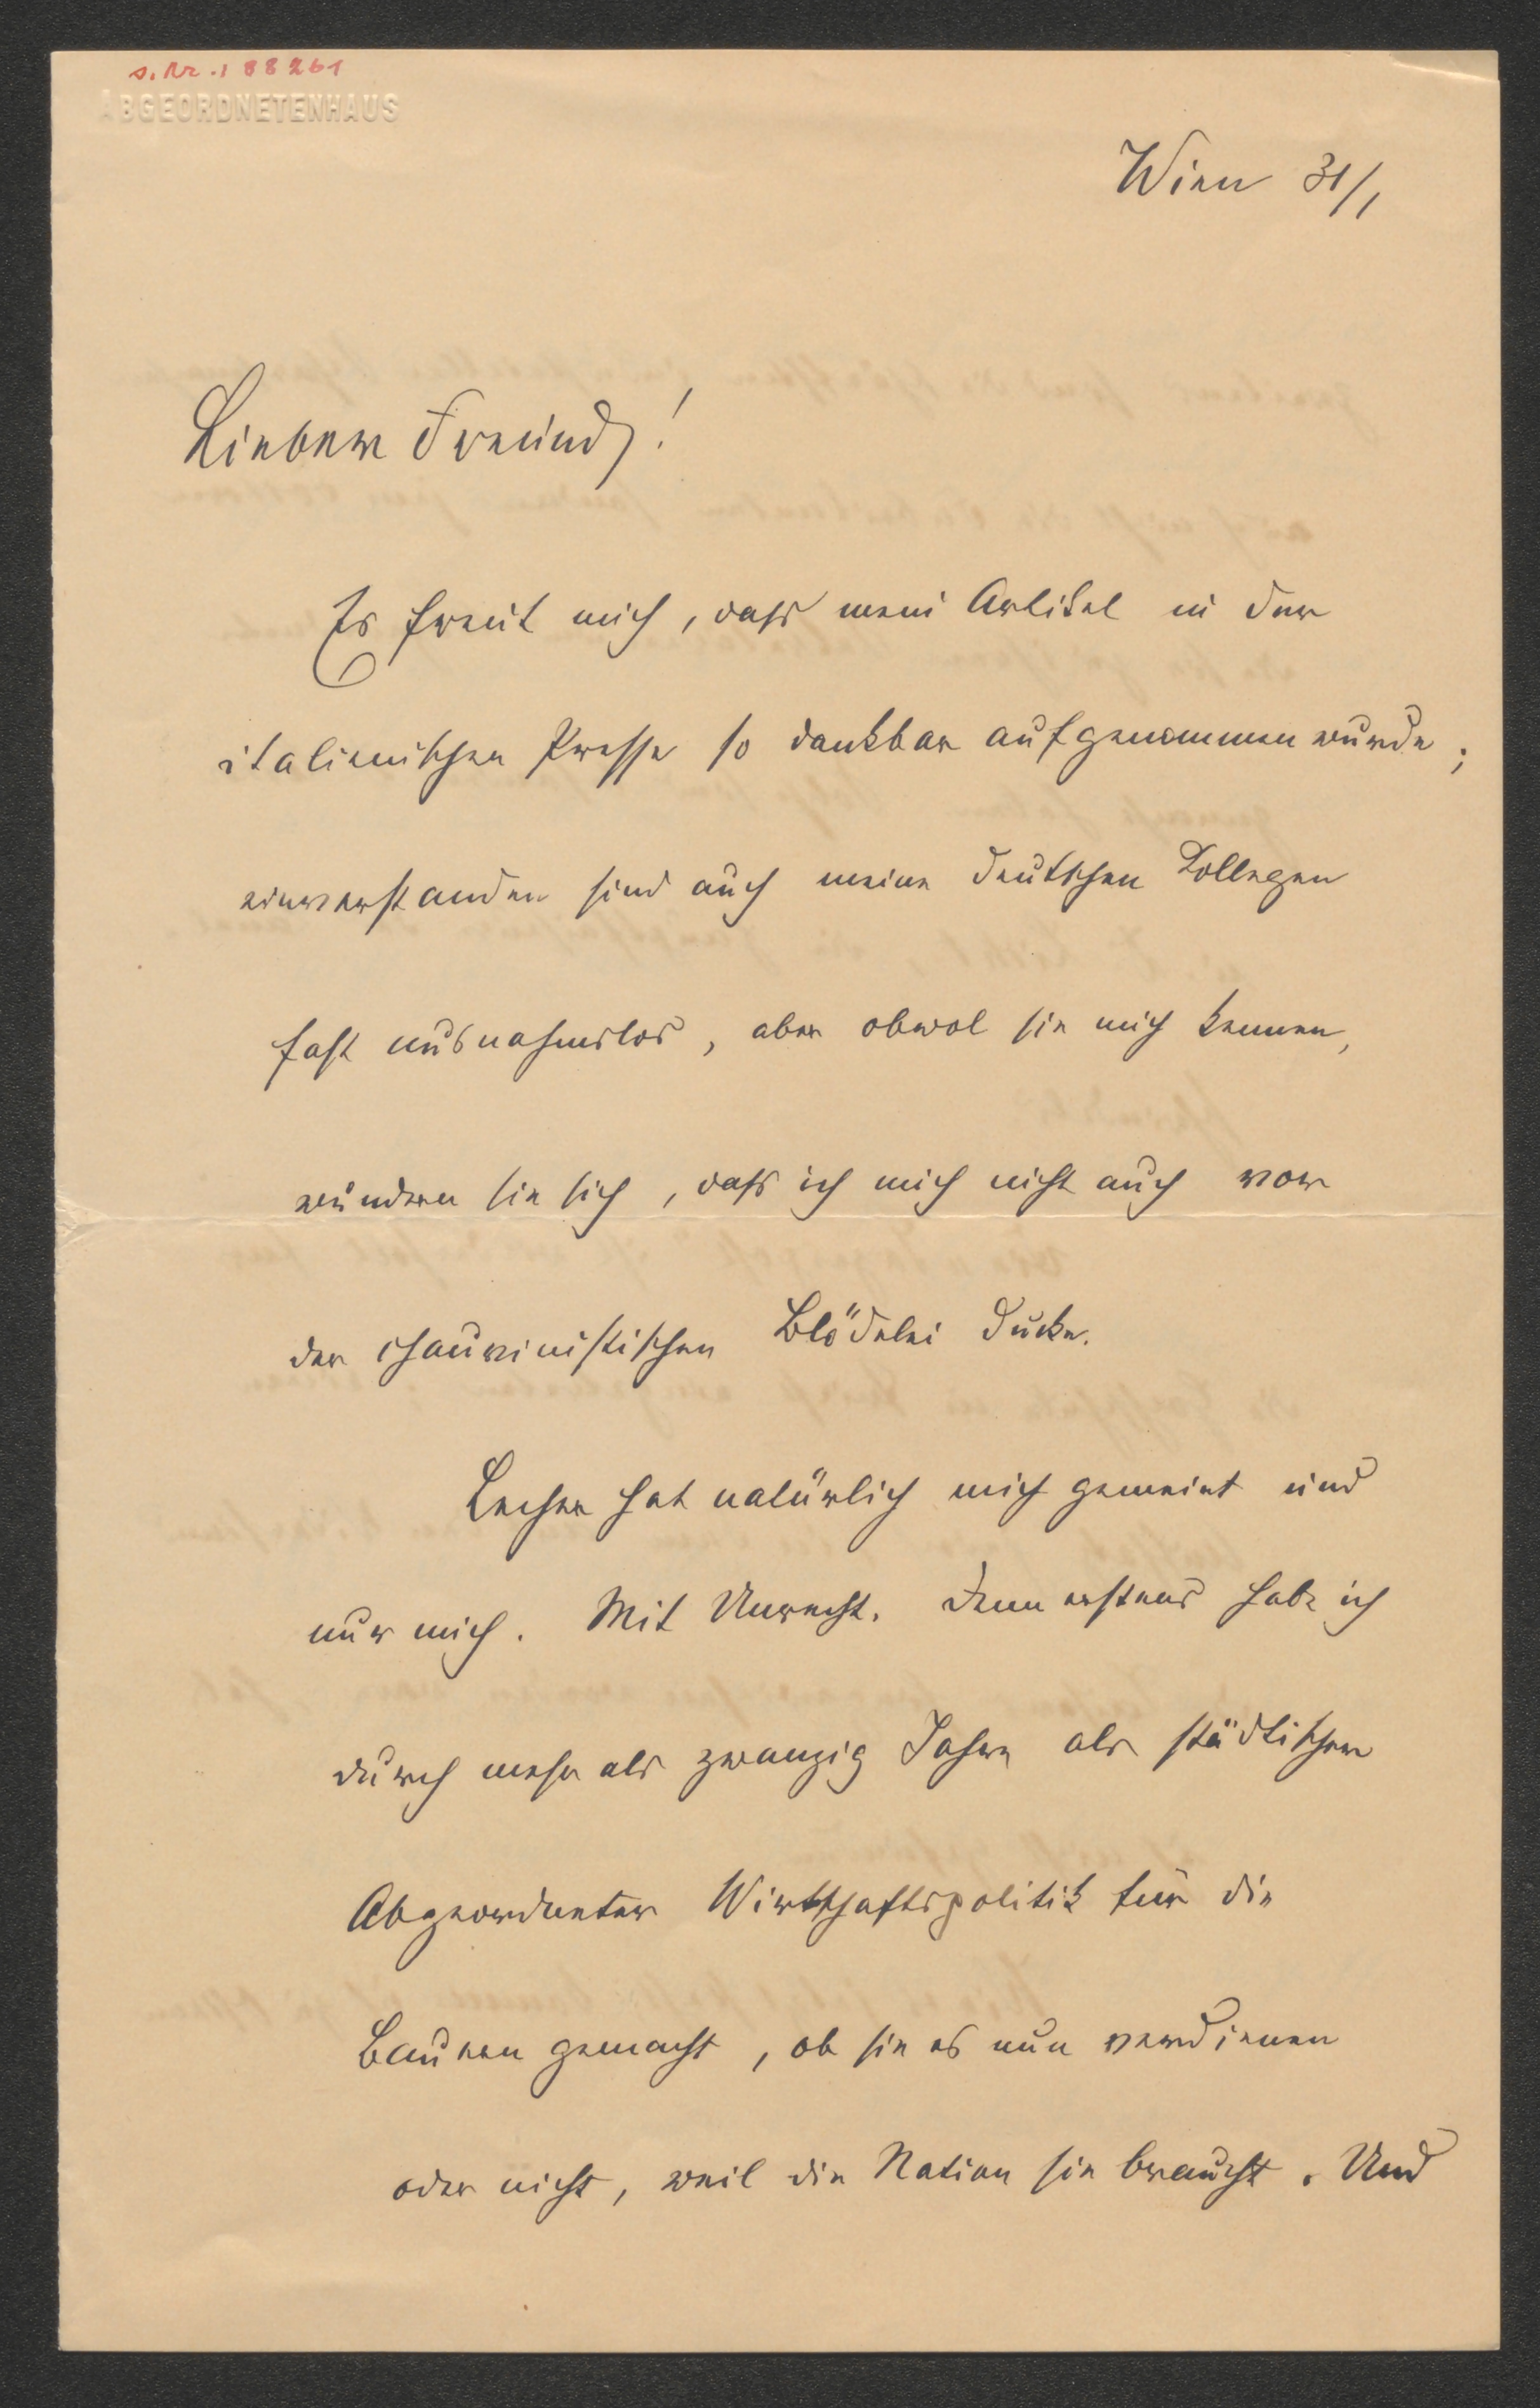 s. Nr. 188261
ABGEORDNETENHAUS
Wien 31/1
Lieber Freund!
Es freut mich, dass mein Artikel in der
italienischen Presse so dankbar aufgenommen wurde;
einverstanden sind auch meine deutschen Kollegen
fast ausnahmslos, aber obwol sie mich kennen,
wundern sie sich, dass ich mich nicht auch vor
der chauvinistischen Blödelei ducke.
Lecher hat natürlich mich gemeint und
nur mich. Mit Unrecht. Denn erstens habe ich
durch mehr als zwanzig Jahre als städtischer
Abgeordneter Wirtschaftspolitik für die
Bauern gemacht, ob sie es nun verdienen
oder nicht, weil die Nation sie braucht. Und